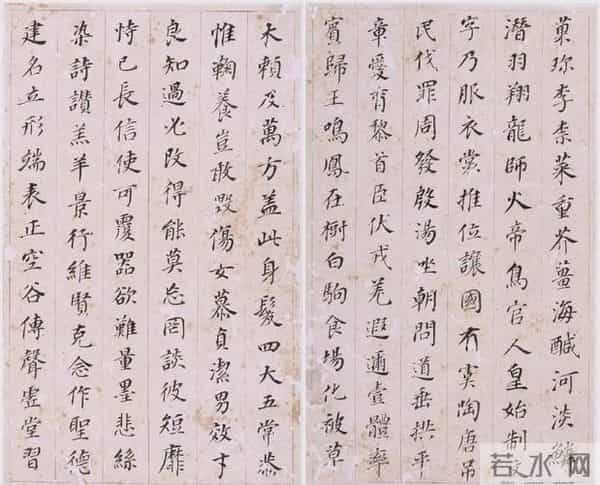 菓珍李柰菜重芥薑海醎河淡鱗
潛羽翔龍師火帝鳥官人皇始制文
字乃服衣裳推位讓國有虞陶唐吊
民伐罪周發殷湯坐朝問道垂拱平
章愛育黎首臣伏戎羌遐邇壹體率
賓歸王鳴鳳在樹白駒食場化被草
木賴及萬方盖此身髮四大五常恭
惟鞠養豈敢毀傷女慕貞潔男效才
良知過必改得能莫忘罔談彼短靡
恃己長信使可覆器欲難量墨悲絲
染詩讚羔羊景行維賢克念作聖德
建名立形端表正空谷傳聲虛堂習
若水网